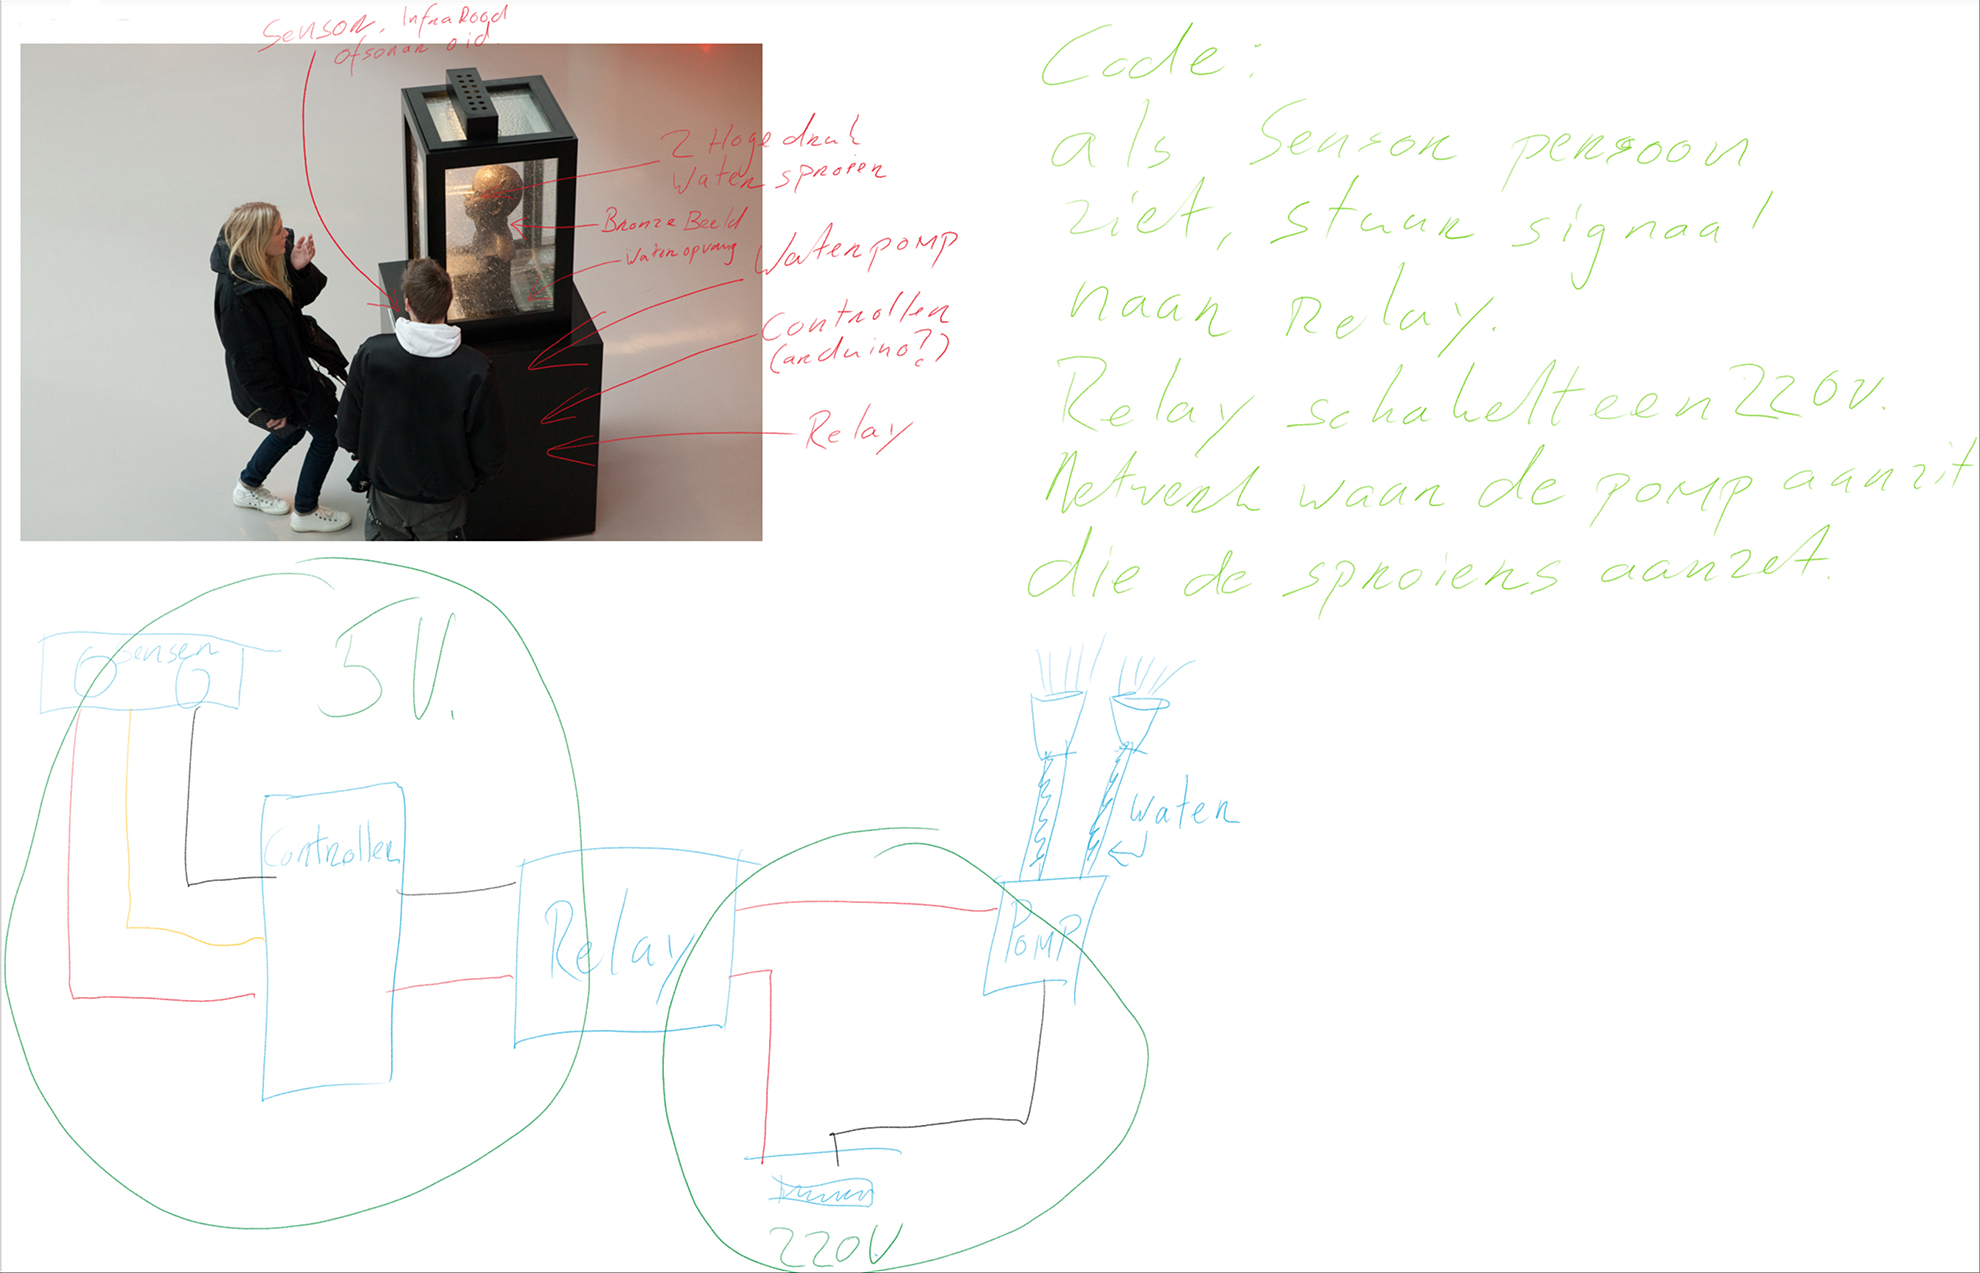 Sensor. InfraRood
of sonar oid.
2 Hoge druk
Water sproeier
Bronze Beeld
Water opvang
Waterpomp
Controller
(arduino?)
Relay
Code:
als Sensor persoon
ziet, stuur signaal
naar Relay.
Relay schakelt een 220v.
Netwerk waar de pomp aanzit
die de sproeiers aanzet.
5V.
Sensor
Controller
Relay
Pomp
Water
220V